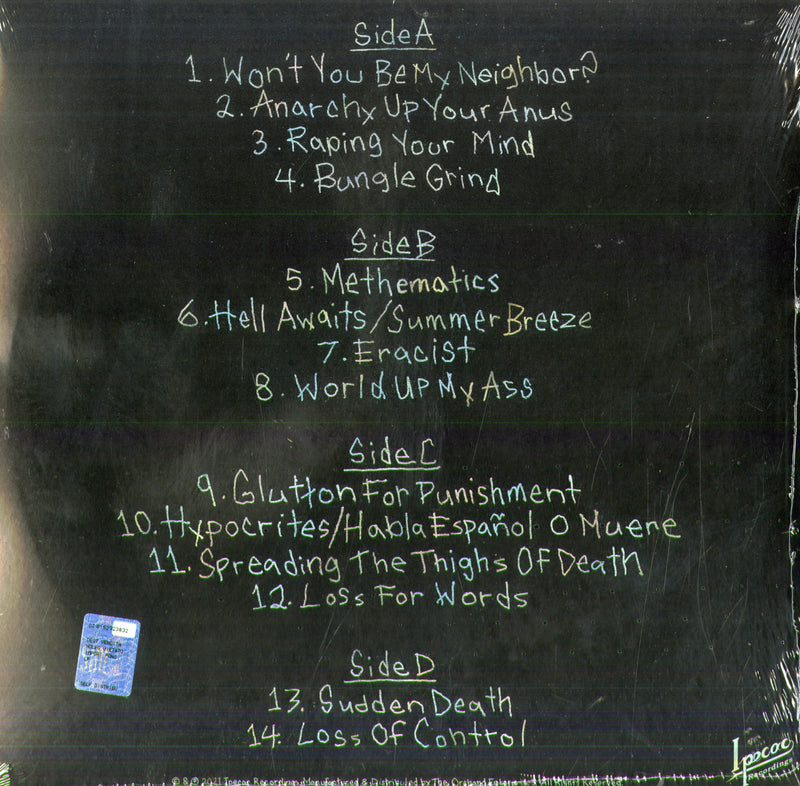 Side A
1. Won't You Be My Neighbor?
2. Anarchy Up Your Anus
3. Raping Your Mind
4. Bungle Grind
Side B
5. Methematics
6. Hell Awaits/Summer Breeze
7. Eracist
8. World Up My Ass
Side C
9. Glutton For Punishment
10. Hypocrites/Habla Español O Muere
11. Spreading The Thighs Of Death
12. Loss For Words
Side D
13. Sudden Death
14. Loss Of Control
Ipecac
Recordings
2021 Ipecac Recordings. Manufactured & Distributed by The Orchard All Rights Reserved.